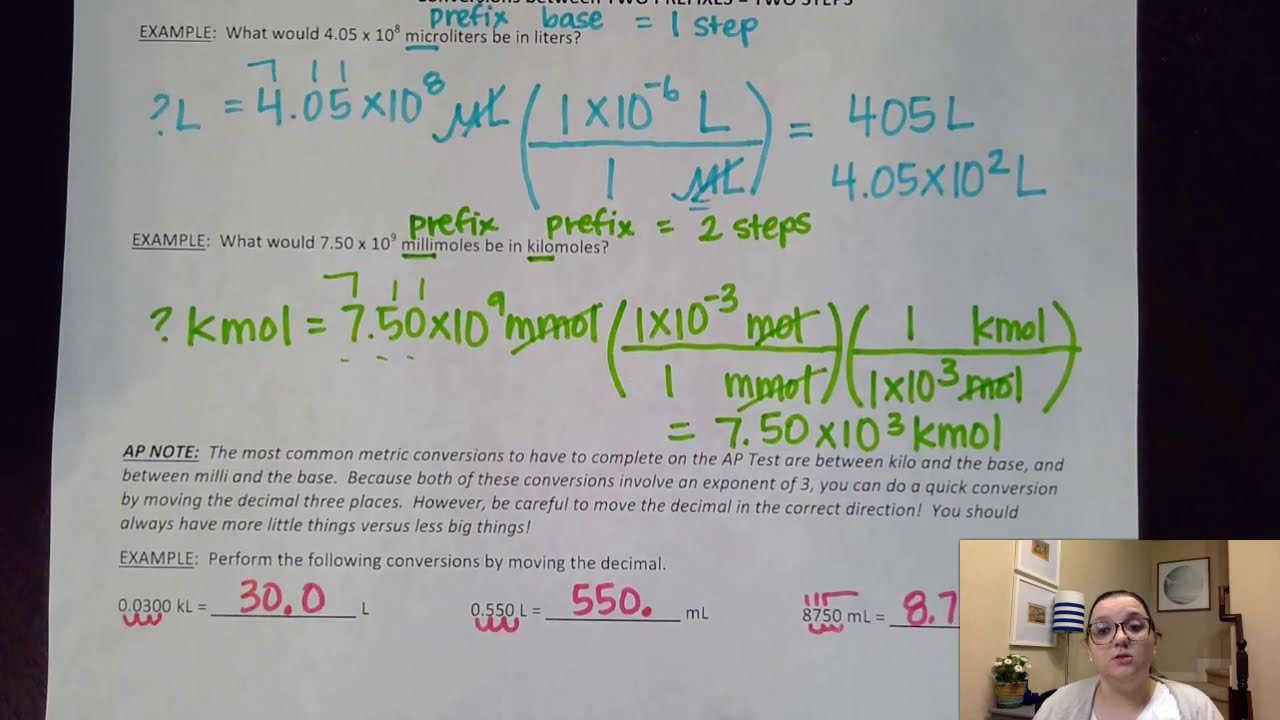 Conversions between TWO PREFIXES = TWO STEPS
prefix base = 1 step
EXAMPLE: What would 4.05 x 10⁸ microliters be in liters?
?L = 4.05×10⁸ µL (1×10⁻⁶ L / 1 µL) = 405L
4.05×10² L
prefix prefix = 2 steps
EXAMPLE: What would 7.50 x 10⁹ millimoles be in kilomoles?
? kmol = 7.50×10⁹ mmol (1×10⁻³ mol / 1 mmol)(1 kmol / 1×10³ mol)
= 7.50×10³ kmol
AP NOTE: The most common metric conversions to have to complete on the AP Test are between kilo and the base, and
between milli and the base. Because both of these conversions involve an exponent of 3, you can do a quick conversion
by moving the decimal three places. However, be careful to move the decimal in the correct direction! You should
always have more little things versus less big things!
EXAMPLE: Perform the following conversions by moving the decimal.
0.0300 kL = 30.0 L 0.550 L = 550. mL 8750 mL = 8.7